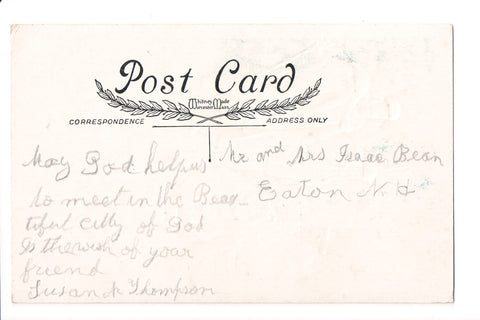 Post Card
Whitney Made
Worcester Mass
CORRESPONDENCE ADDRESS ONLY
May God help us
to meet in the Beau
tiful City of God
Is the wish of your
friend
Susan N Thompson
Mr and Mrs Isaac Bean
Eaton N H